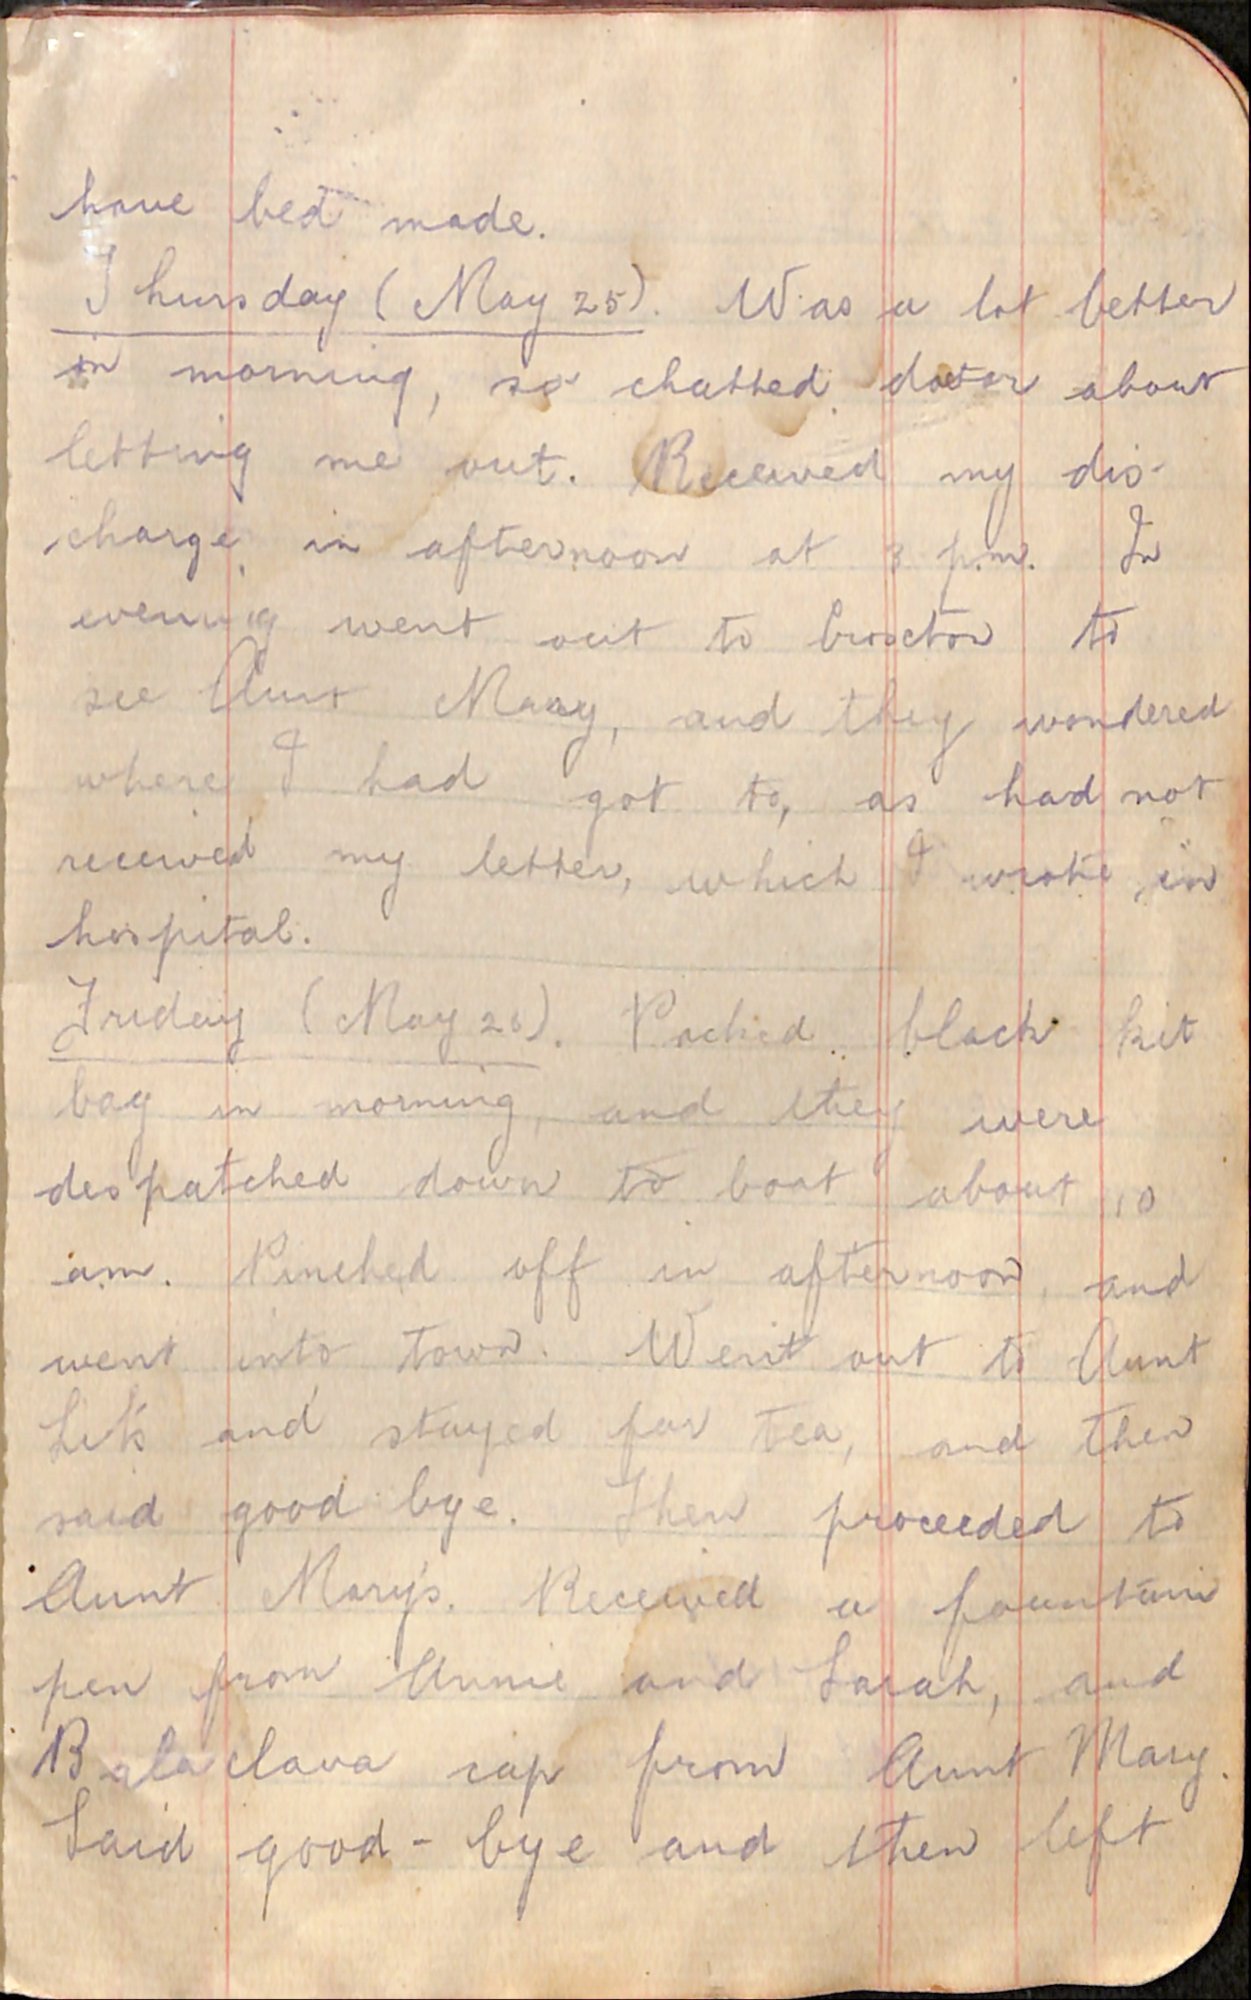 have bed made.
Thursday (May 25). Was a lot better
in morning, so chatted doctor about
letting me out. Received my dis-
charge in afternoon at 3 p.m. In
evening went out to to
see Aunt Mary, and they wondered
where I had got to, as had not
received my letter, which I wrote in
hospital.
Friday (May 26). Packed black kit
bag in morning, and they were
despatched down to boat about 10
am. Pinched off in afternoon and
went into town. Went out to Aunt
and stayed for tea, and then
said good bye. Then proceeded to
Aunt Mary's. Received a fountain
pen from Annie and Sarah, and
Balaclava cap from Aunt Mary.
Said good-bye and then left